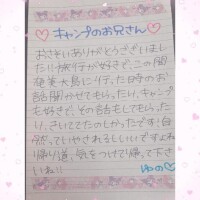 ♡キャンプのお兄さん♡
おさそいありがとうございまし
た!!旅行が好きで、この間
奄美大島に行った時のお
話聞かせてもらったり、キャンプ
も好きで、その話もしてもらった
り、きいてて楽しかったです!自
然っていやされるしいいですよね
帰り道、気をつけて帰って下さ
いね!!
ゆの♡